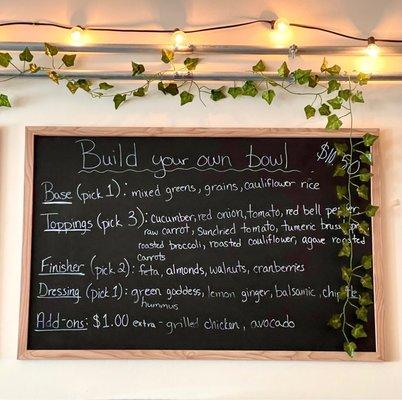 Build your own bowl
$10.50
Base (pick 1): mixed greens, grains, cauliflower rice
Toppings (pick 3): cucumber, red onion, tomato, red bell pepper
raw carrot, sundried tomato, tumeric
roasted broccoli, roasted cauliflower, agave roasted
carrots
Finisher (pick 2): feta, almonds, walnuts, cranberries
Dressing (pick 1): green goddess, lemon ginger, balsamic, chipotle
hummus
Add-ons: $1.00 extra - grilled chicken, avocado